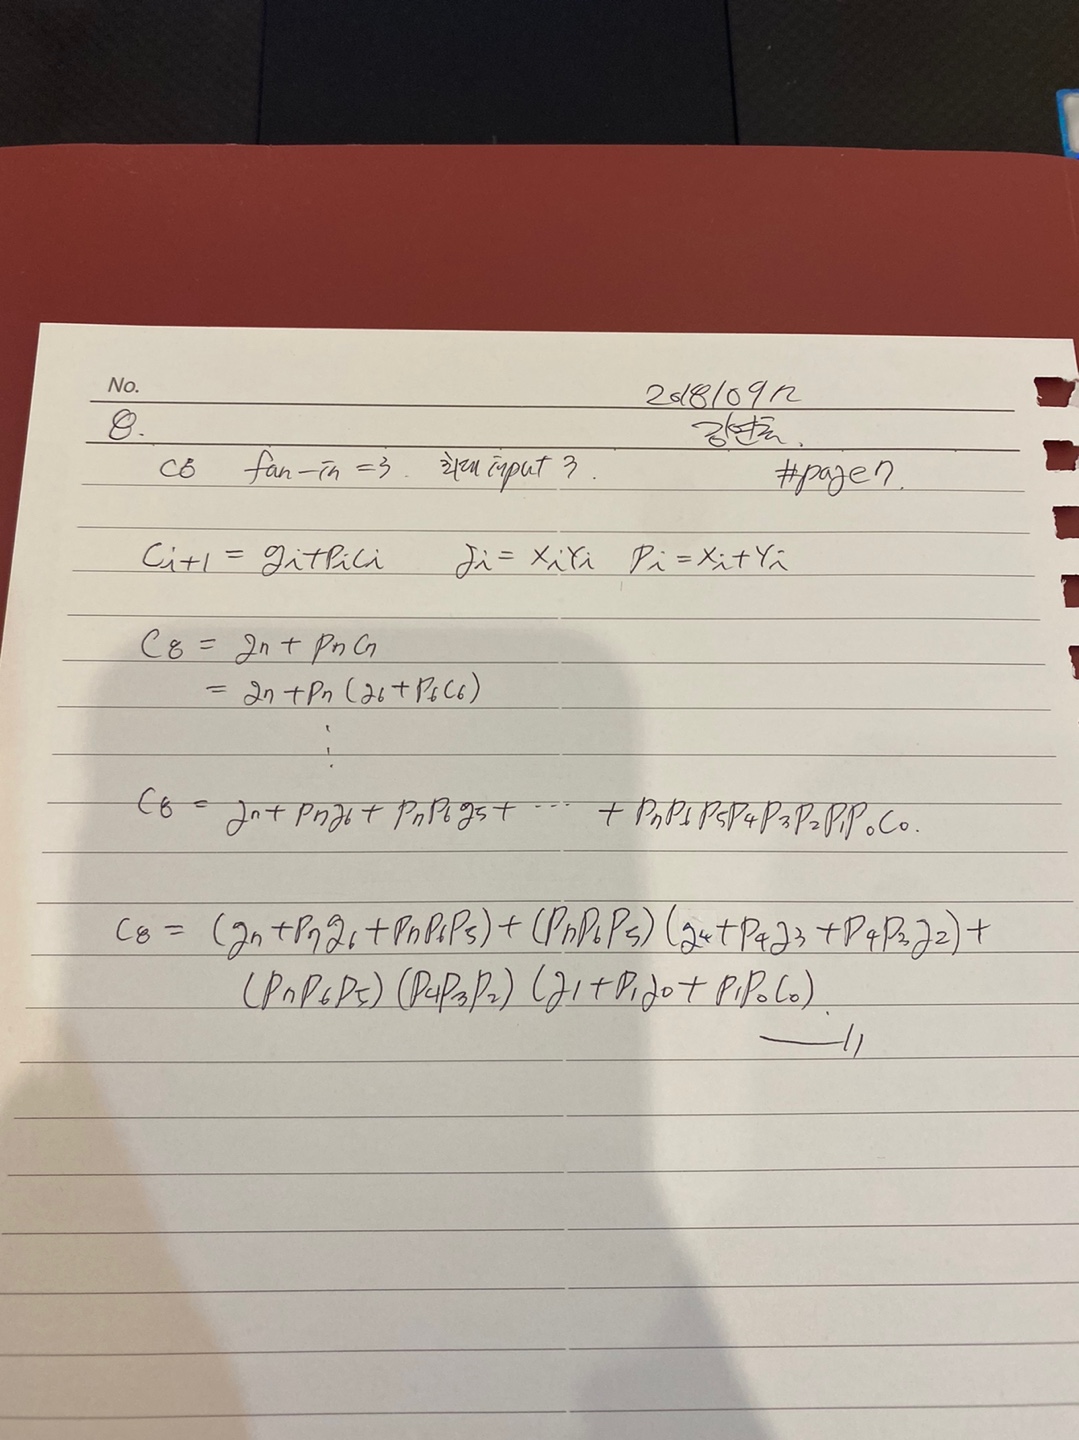 No.
8.
C8 fan-in =3. 최대 input 3.
#page7.
Ci+1 = gi+PiCi gi = XiYi Pi = Xi+Yi
C8 = g7 + P7C7
= g7 + P7 (g6+P6C6)
⋮
C8 = g7 + P7g6 + P7P6g5 + ... + P7P6P5P4P3P2P1P0C0.
C8 = (g7 + P7g6 + P7P6P5) + (P7P6P5) (g4 + P4g3 + P4P3g2) +
(P7P6P5) (P4P3P2) (g1 + P1g0 + P1P0C0)